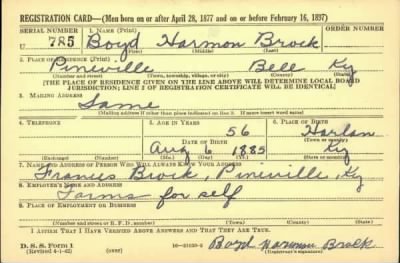 REGISTRATION CARD—(Men born on or after April 28, 1877 and on or before February 16, 1897)
SERIAL NUMBER 1. NAME (Print) ORDER NUMBER
U 785 Boyd Harmon Brock
(First) (Middle) (Last)
2. PLACE OF RESIDENCE (Print)
Pineville Bell Ky
(Number and street) (Town, township, village, or city) (County) (State)
[THE PLACE OF RESIDENCE GIVEN ON THE LINE ABOVE WILL DETERMINE LOCAL BOARD
JURISDICTION; LINE 2 OF REGISTRATION CERTIFICATE WILL BE IDENTICAL]
3. MAILING ADDRESS
Same
[Mailing address if other than place indicated on line 2. If same insert word same]
4. TELEPHONE 5. AGE IN YEARS 6. PLACE OF BIRTH
56 Harlan
DATE OF BIRTH (Town or county)
Aug 6 1885 Ky
(Exchange) (Number) (Mo.) (Day) (Yr.) (State or country)
7. NAME AND ADDRESS OF PERSON WHO WILL ALWAYS KNOW YOUR ADDRESS
Frances Brock, Pineville, Ky
8. EMPLOYER'S NAME AND ADDRESS
Farms for self
9. PLACE OF EMPLOYMENT OR BUSINESS
(Number and street or R. F. D. number) (Town) (County) (State)
I AFFIRM THAT I HAVE VERIFIED ABOVE ANSWERS AND THAT THEY ARE TRUE.
D. S. S. Form 1
(Revised 4-1-42) (over) Boyd Harmon Brock